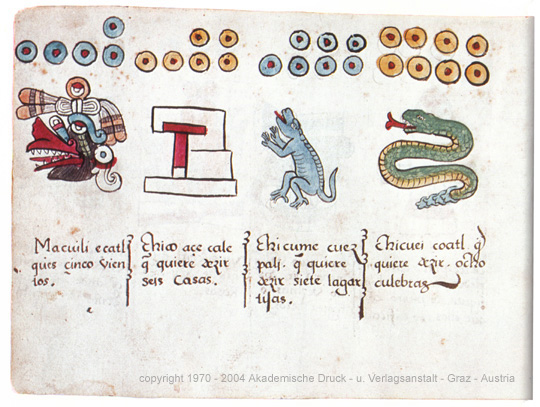 Macuili ecatl
q̃ es cinco vien
tos.
Chico açe cale
q̃ quiere dezir
seis casas.
Chicume cuez
pali. q̃ quiere
dezir siete lagar
tijas.
Chicuei coatl q̃
quiere dezir. ocho
culebras
copyright 1970 - 2004 Akademische Druck - u. Verlagsanstalt - Graz - Austria